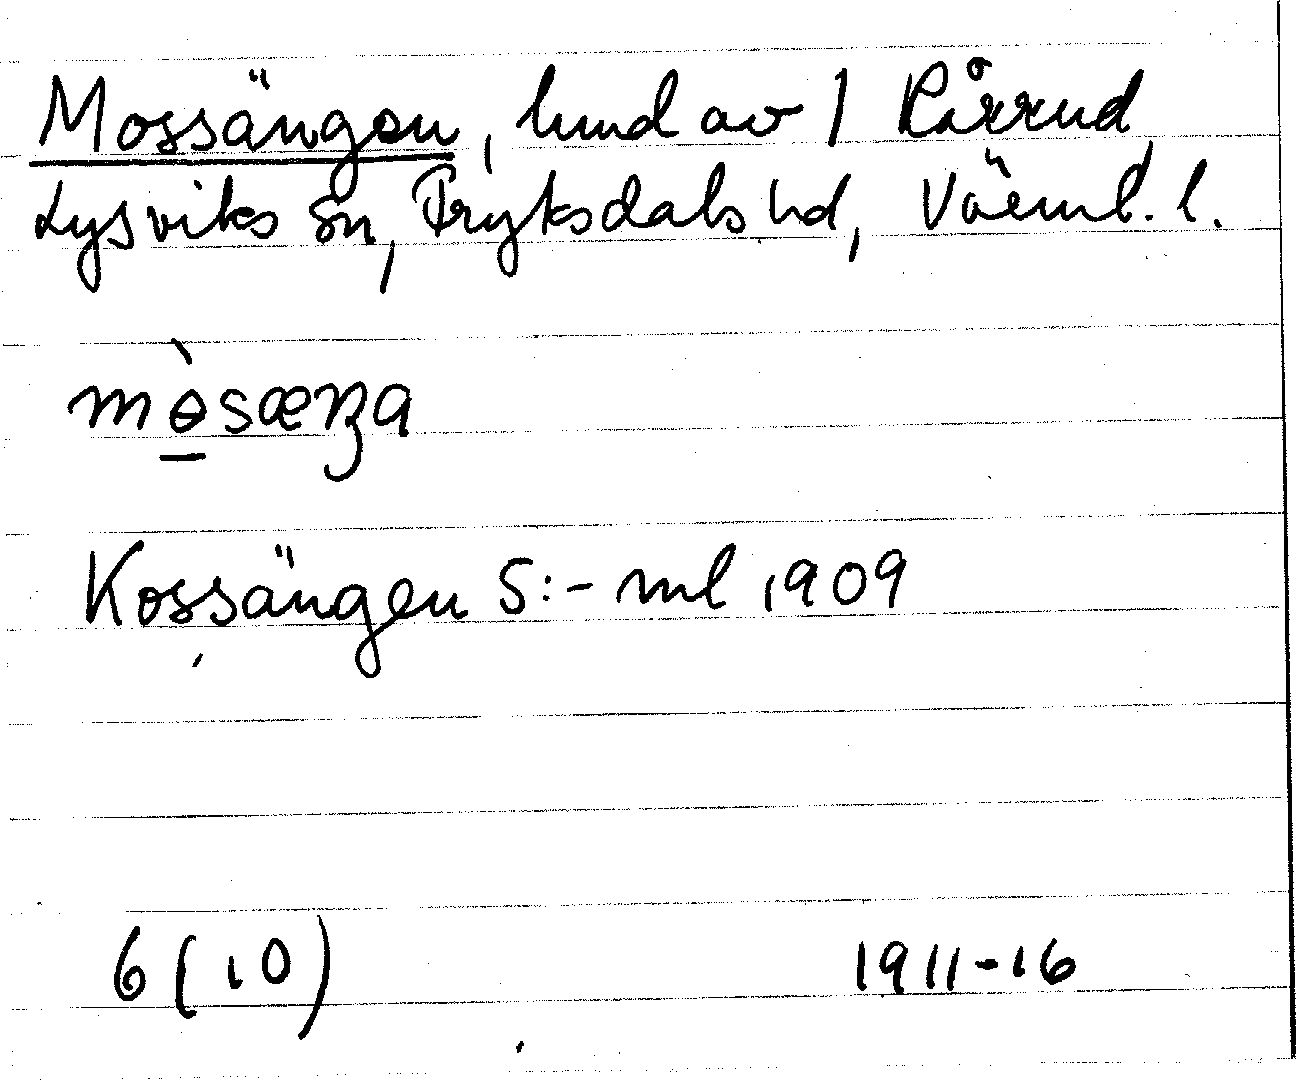 Mossängen, lund av 1 Rårrud
Lysviks sn, Fryksdals hd, Värml. l.
mòsæŋa
Kossängen S:- ml 1909
6 (10)
1911-16